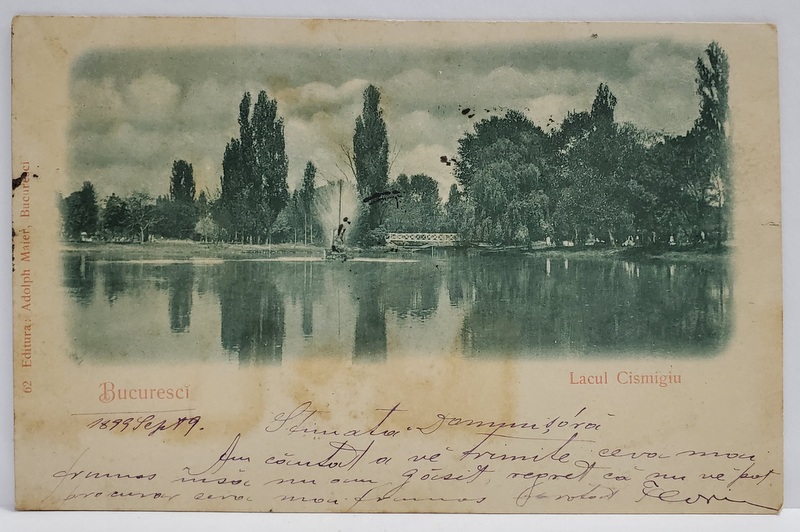 62 Editura: Adolph Maier, Bucuresci
Bucuresci
Lacul Cismigiu
1899 Sept 9.
Stimata Domnișóră
Am căutat a vĕ trimite ceva mai
frumos însă nu am găsit, regret că nu vĕ pot
procura ceva mai frumos Florin